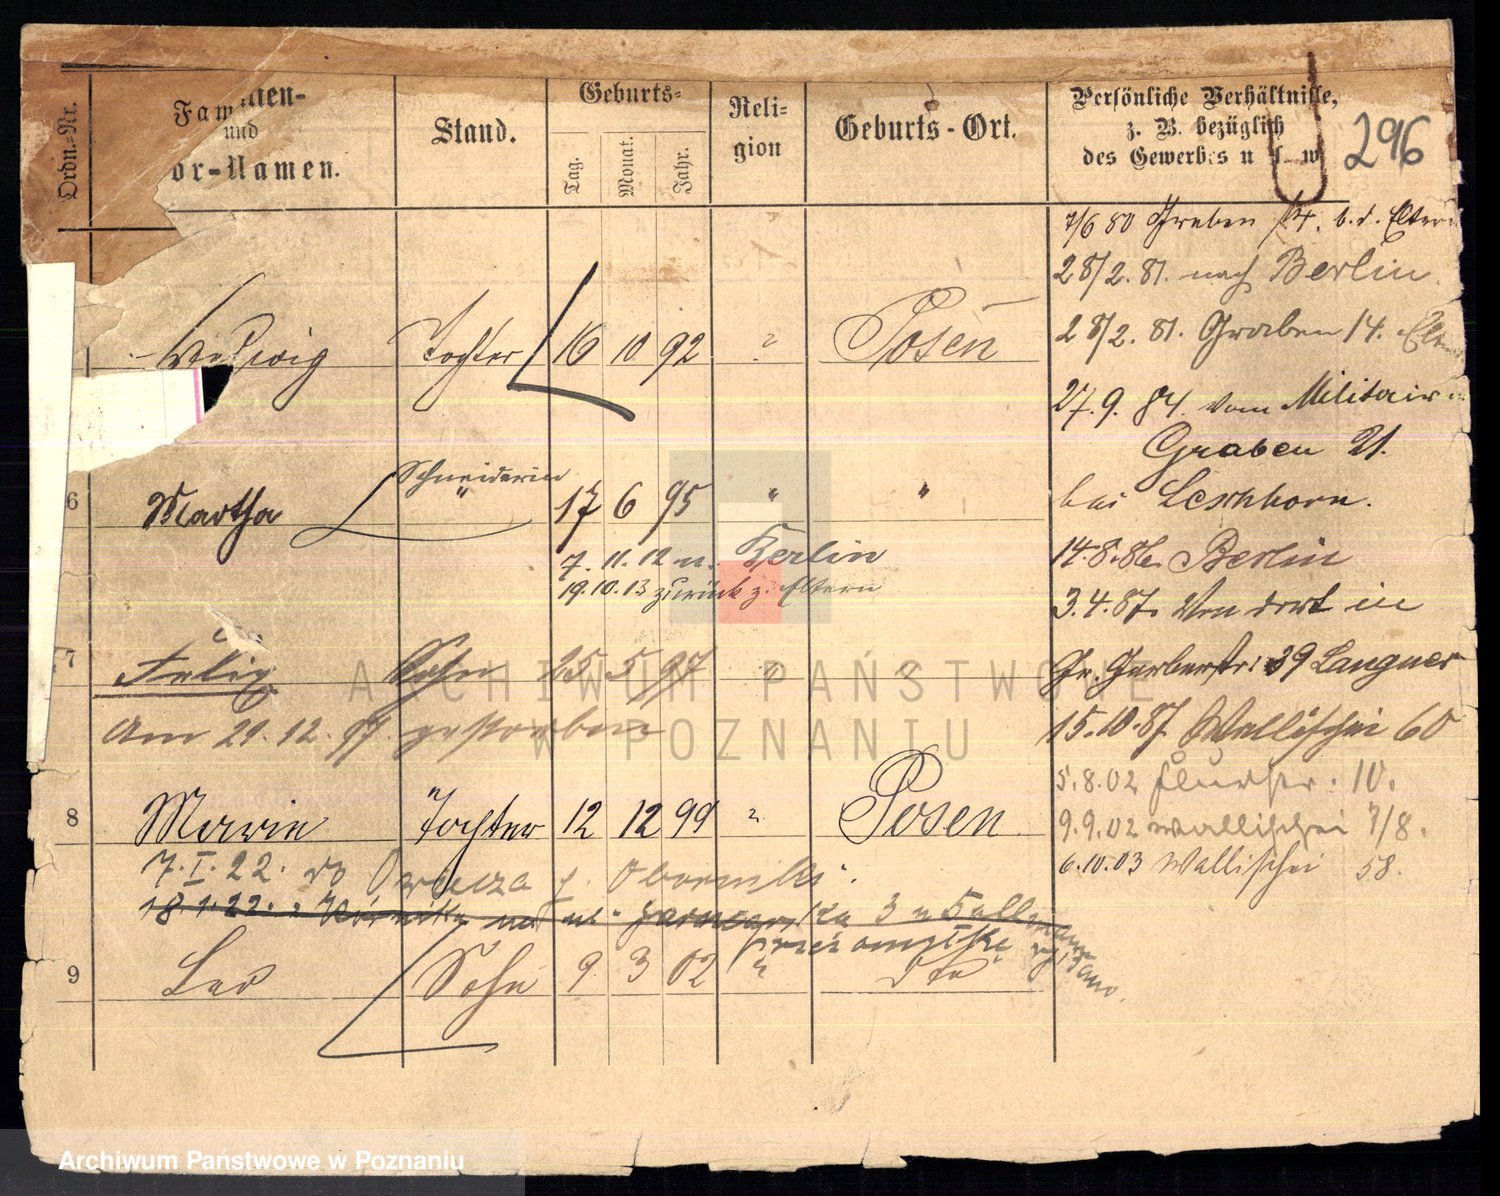 Ordn.-Nr.
Familien-
und
or-Namen.
Stand.
Geburts-
Tag.
Monat.
Jahr.
Reli-
gion
Geburts-Ort.
Persönliche Verhältnisse,
z. B. bezüglich
des Gewerbes u. s. w.
296
7/6 80 Graben b. d. Eltern
28/2. 81. nach Berlin.
28/2. 81. Graben 14. Eltern
27. 9. 84. vom Militair
Graben 21.
bei Leschhorn.
14. 8. 86. Berlin
3. 4. 87. Von dort in
Gr. Gerberstr. 39 Langner
15. 10. 87. Wallischei 60
5. 8. 02 10.
9. 9. 02 Wallischei 7/8.
6. 10. 03 Wallischei 58.
Hedwig Tochter 16 10 92 " Posen
Schneiderin
6 Martha " 17 6 95 " "
7. 11. 12 n. Berlin
19. 10. 13 zurück z. Eltern
7 Felix Sohn 25 5 97 " "
Am 29. 12. 97. gestorben
8 Marie Tochter 12 12 99 " Posen
7. I. 22. do p. Oborniki.
18. 1. 22. z
9 Leo Sohn 9 3 02 " dto
ARCHIWUM PAŃSTWOWE
W POZNANIU
Archiwum Państwowe w Poznaniu